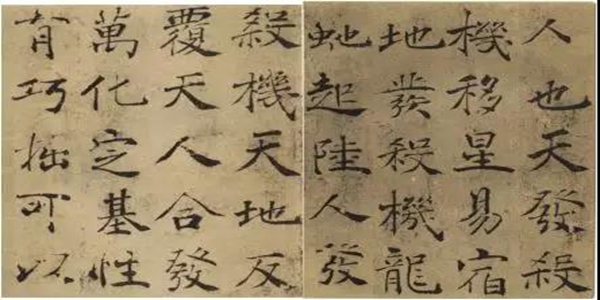 人也天發殺
機移星易宿
地發殺機龍
虵起陸人發
殺機天地反
覆天人合發
萬化定基性
有巧拙可以